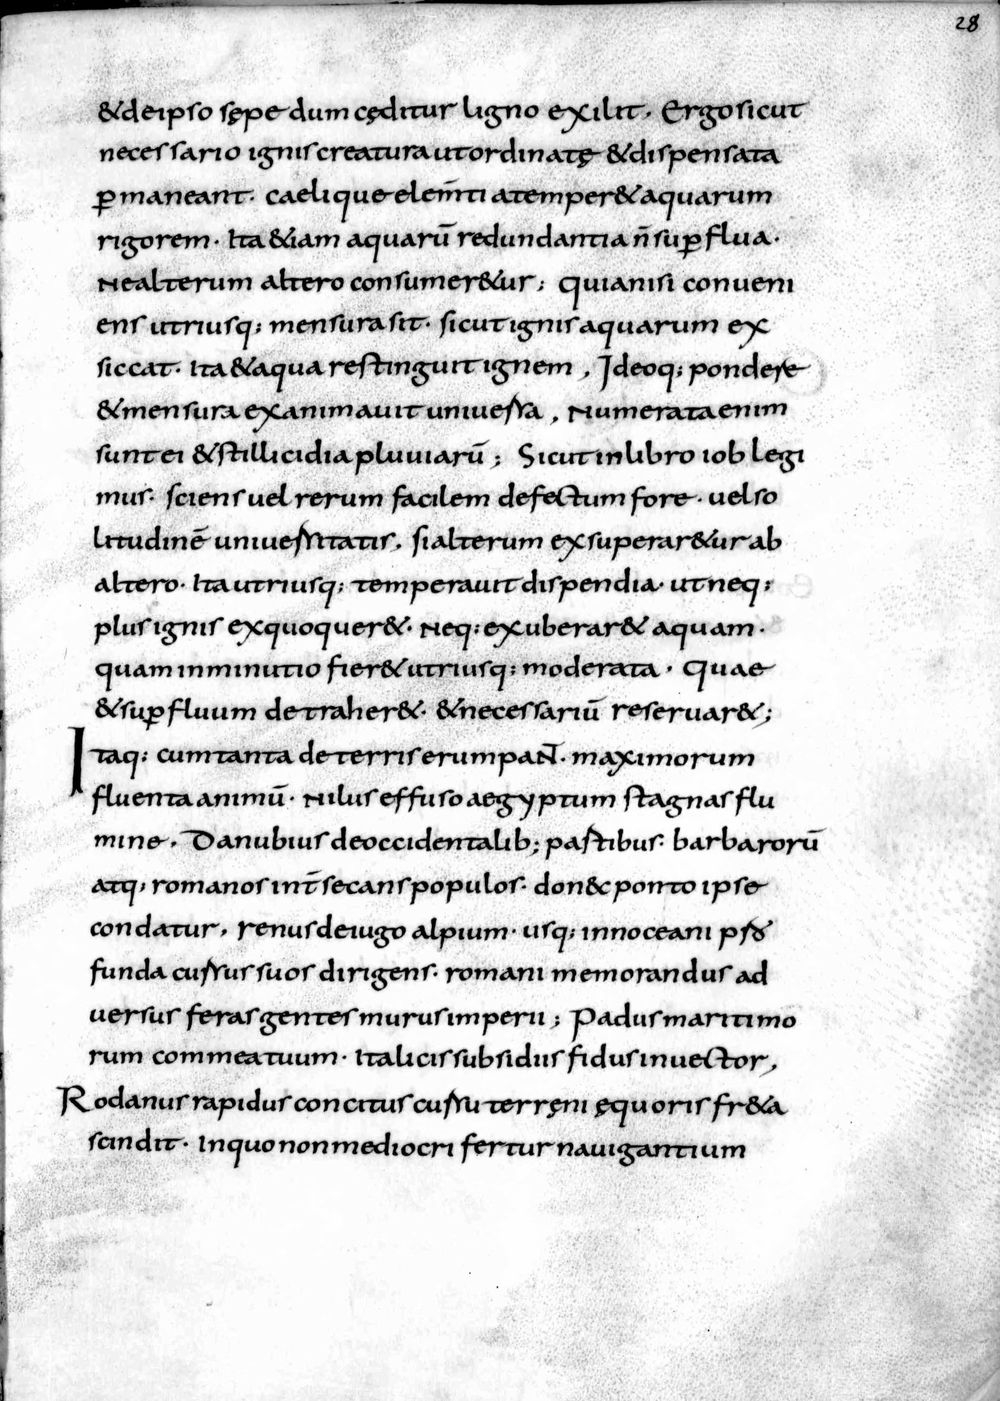 28
& deipso sępe dum cęditur ligno exilit. Ergo sicut
necessario ignis creatura ut ordinatę & dispensata
ꝑmaneant. caelique elem̄ti a temper& aquarum
rigorem. Ita &iam aquarū redundantia n̄ suꝑflua.
Ne alterum altero consumer&ur; quia nisi conueni
ens utriusq; mensura sit. sicut ignis aquarum ex
siccat. Ita & aqua restinguit ignem, Ideoq; pondere
& mensura examinauit uniuersa, Numerata enim
sunt ei & stillicidia pluuiarū; Sicut in libro iob legi
mus. sciens uel rerum facilem defectum fore. uel so
litudinē uniuersitatis, si alterum exsuperar&ur ab
altero. Ita utriusq; temperauit dispendia. ut neq;
plus ignis exquoquer&. Neq; exuberar& aquam.
quam inminutio fier& utriusq; moderata. Quae
& suꝑfluum detraher&. & necessariū reseruar&;
Itaq; cum tanta de terris erumpant. maximorum
fluenta animū. Nilus effuso aegyptum stagnas flu
mine. Danubius de occidentalib; partibus. barbarorū
atq; romanos int̄secans populos. don&c ponto ipse
condatur. renus de iugo alpium. usq; in noceani pro
funda cursus suos dirigens. romani memorandus ad
versus feras gentes murus imperii; Padus maritimo
rum commeatuum. Italicis subsidiis fidus inuector,
Rodanus rapidus concitus cursu terręni ęquoris fr&a
scindit. In quo non mediocri fertur nauigantium